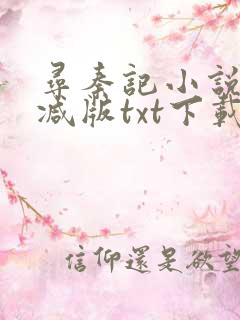 尋秦記小說
減版txt下載
信仰還是欲望